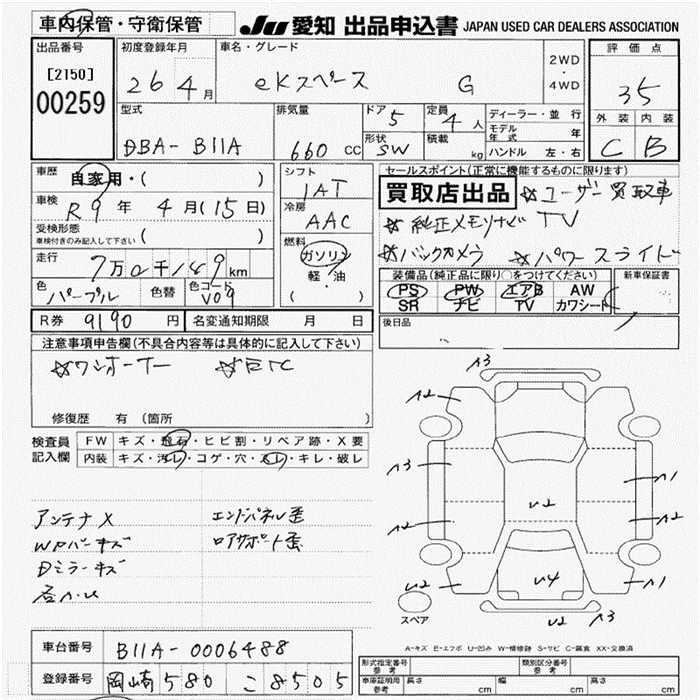 車内保管・守衛保管
JU 愛知 出品申込書 JAPAN USED CAR DEALERS ASSOCIATION
出品番号
[2150]
00259
初度登録年月
26 4月
車名・グレード
eKスペース G
2WD
・
4WD
評価点
35
外装 内装
C B
型式
DBA-B11A
排気量
660 cc
ドア 5
形状 SW
定員 4人
積載 kg
ディーラー・並行
モデル年式 年
ハンドル 左・右
車歴 自家用・( )
車検 R9年 4月(15日)
受検形態
車検付きのみ記入して下さい ( )
走行 7万0千149km
色 パープル
色替
色コード V09
シフト
IAT
冷房
AAC
燃料
ガソリン
軽・油
( )
セールスポイント(正常に機能するものに限ります)
買取店出品 ☆ユーザー買取車
☆純正メモリナビ TV
☆バックカメラ ☆パワースライド
装備品(純正品に限り○をつけてください)
PS PW エアB AW
SR ナビ TV カワシート
新車保証書
R券 9190円
名変通知期限 月 日
後日品
注意事項申告欄(不具合内容等は具体的に記入して下さい)
☆ワンオーナー ☆ETC
修復歴 有 (箇所 )
検査員記入欄
FW キズ・飛石・ヒビ割・リペア跡・X要
内装 キズ・汚レ・コゲ・穴・スレ・キレ・破レ
アンテナX エンドパネル歪
WPバーキズ ロアサポート歪
Dミラーキズ
A3
A2 A2
A3 A1
A2 U2 A2
U2 U4 A1
U2 A3
スペア
A-キズ E-エクボ U-凹み W-補修跡 S-サビ C-腐食 XX-交換済
車台番号 B11A-0006488
登録番号 岡崎 580 こ 8505
形式指定番号
参考
類別区分番号
参考
車庫証明用
参考
長さ cm 幅 cm 高さ cm